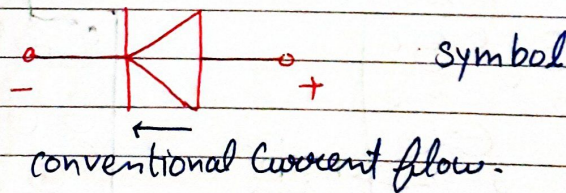 symbol
− +
conventional Current flow.